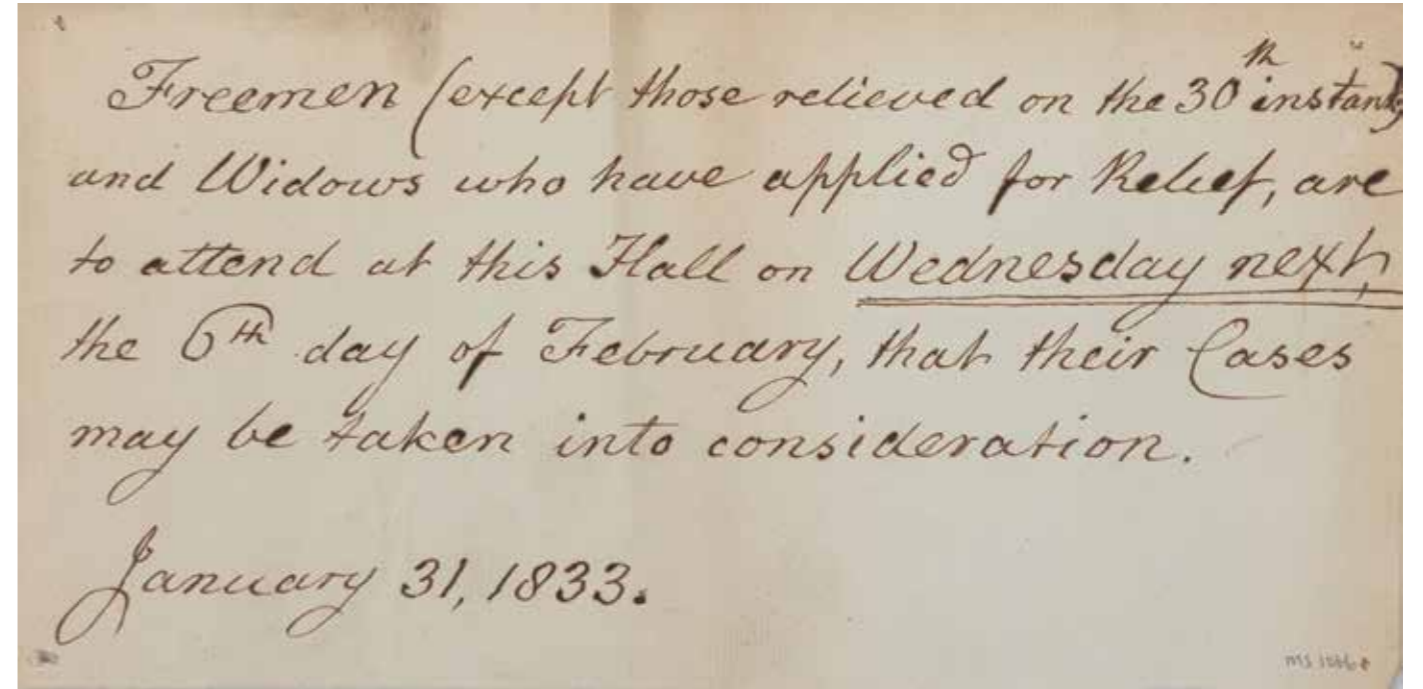 Freemen (except those relieved on the 30th instant)
and Widows who have applied for Relief, are
to attend at this Hall on Wednesday next,
the 6th day of February, that their Cases
may be taken into consideration.
January 31, 1833.